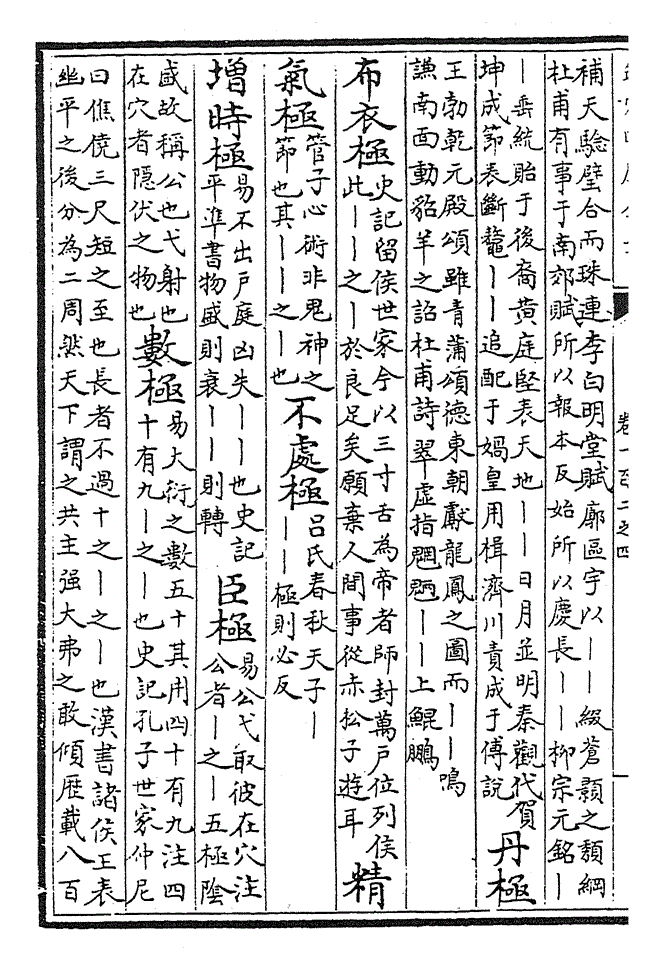 卷一百二之四
補天驗壁合而珠連李白明堂賦廓區宇以丨丨綴蒼顥之頹綱
杜甫有事于南郊賦所以報本反始所以慶長丨丨柳宗元銘丨
丨垂統貽于後裔黃庭堅表天地丨丨日月並明秦觀代賀
坤成節表斷鼇丨丨追配于媧皇用楫濟川責成于傅說
丹極
王勃乾元殿頌雖青蒲頌德東朝獻龍鳳之圖而丨丨鳴
謙南面動貂羊之詔杜甫詩翠虛捎魍魎丨丨上鯤鵬
布衣極
史記留侯世家今以三寸舌為帝者師封萬戶位列侯
此丨丨之丨於良足矣願棄人間事從赤松子遊耳
精
氣極
管子心術非鬼神之
節也其丨丨之丨也
不處極
呂氏春秋天子丨
丨丨極則必反
增時極
易不出戶庭凶失丨丨也史記
平準書物盛則衰丨丨則轉
臣極
易公弋取彼在穴注
公者丨之丨五極陰
盛故稱公也弋射也
在穴者隱伏之物也
數極
易大衍之數五十其用四十有九注四
十有九丨之丨也史記孔子世家仲尼
曰僬僥三尺短之至也長者不過十之丨之丨也漢書諸侯王表
幽平之後分為二周然天下謂之共主强大弗之敢傾歷載八百